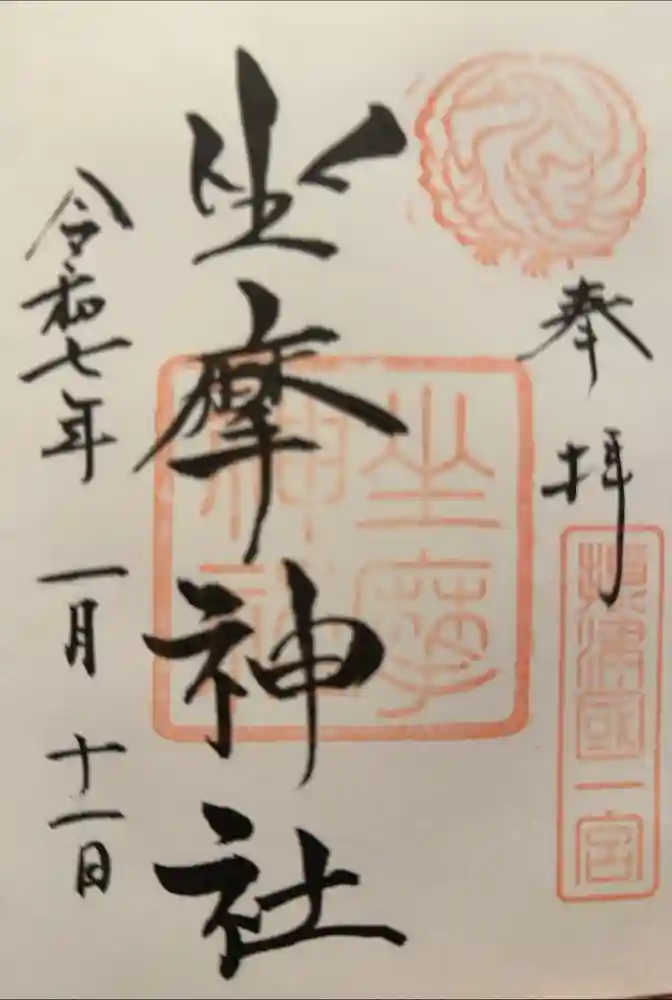 奉拝
摂津國一宮
坐摩神社
坐摩神社
令和七年 一月 十一日